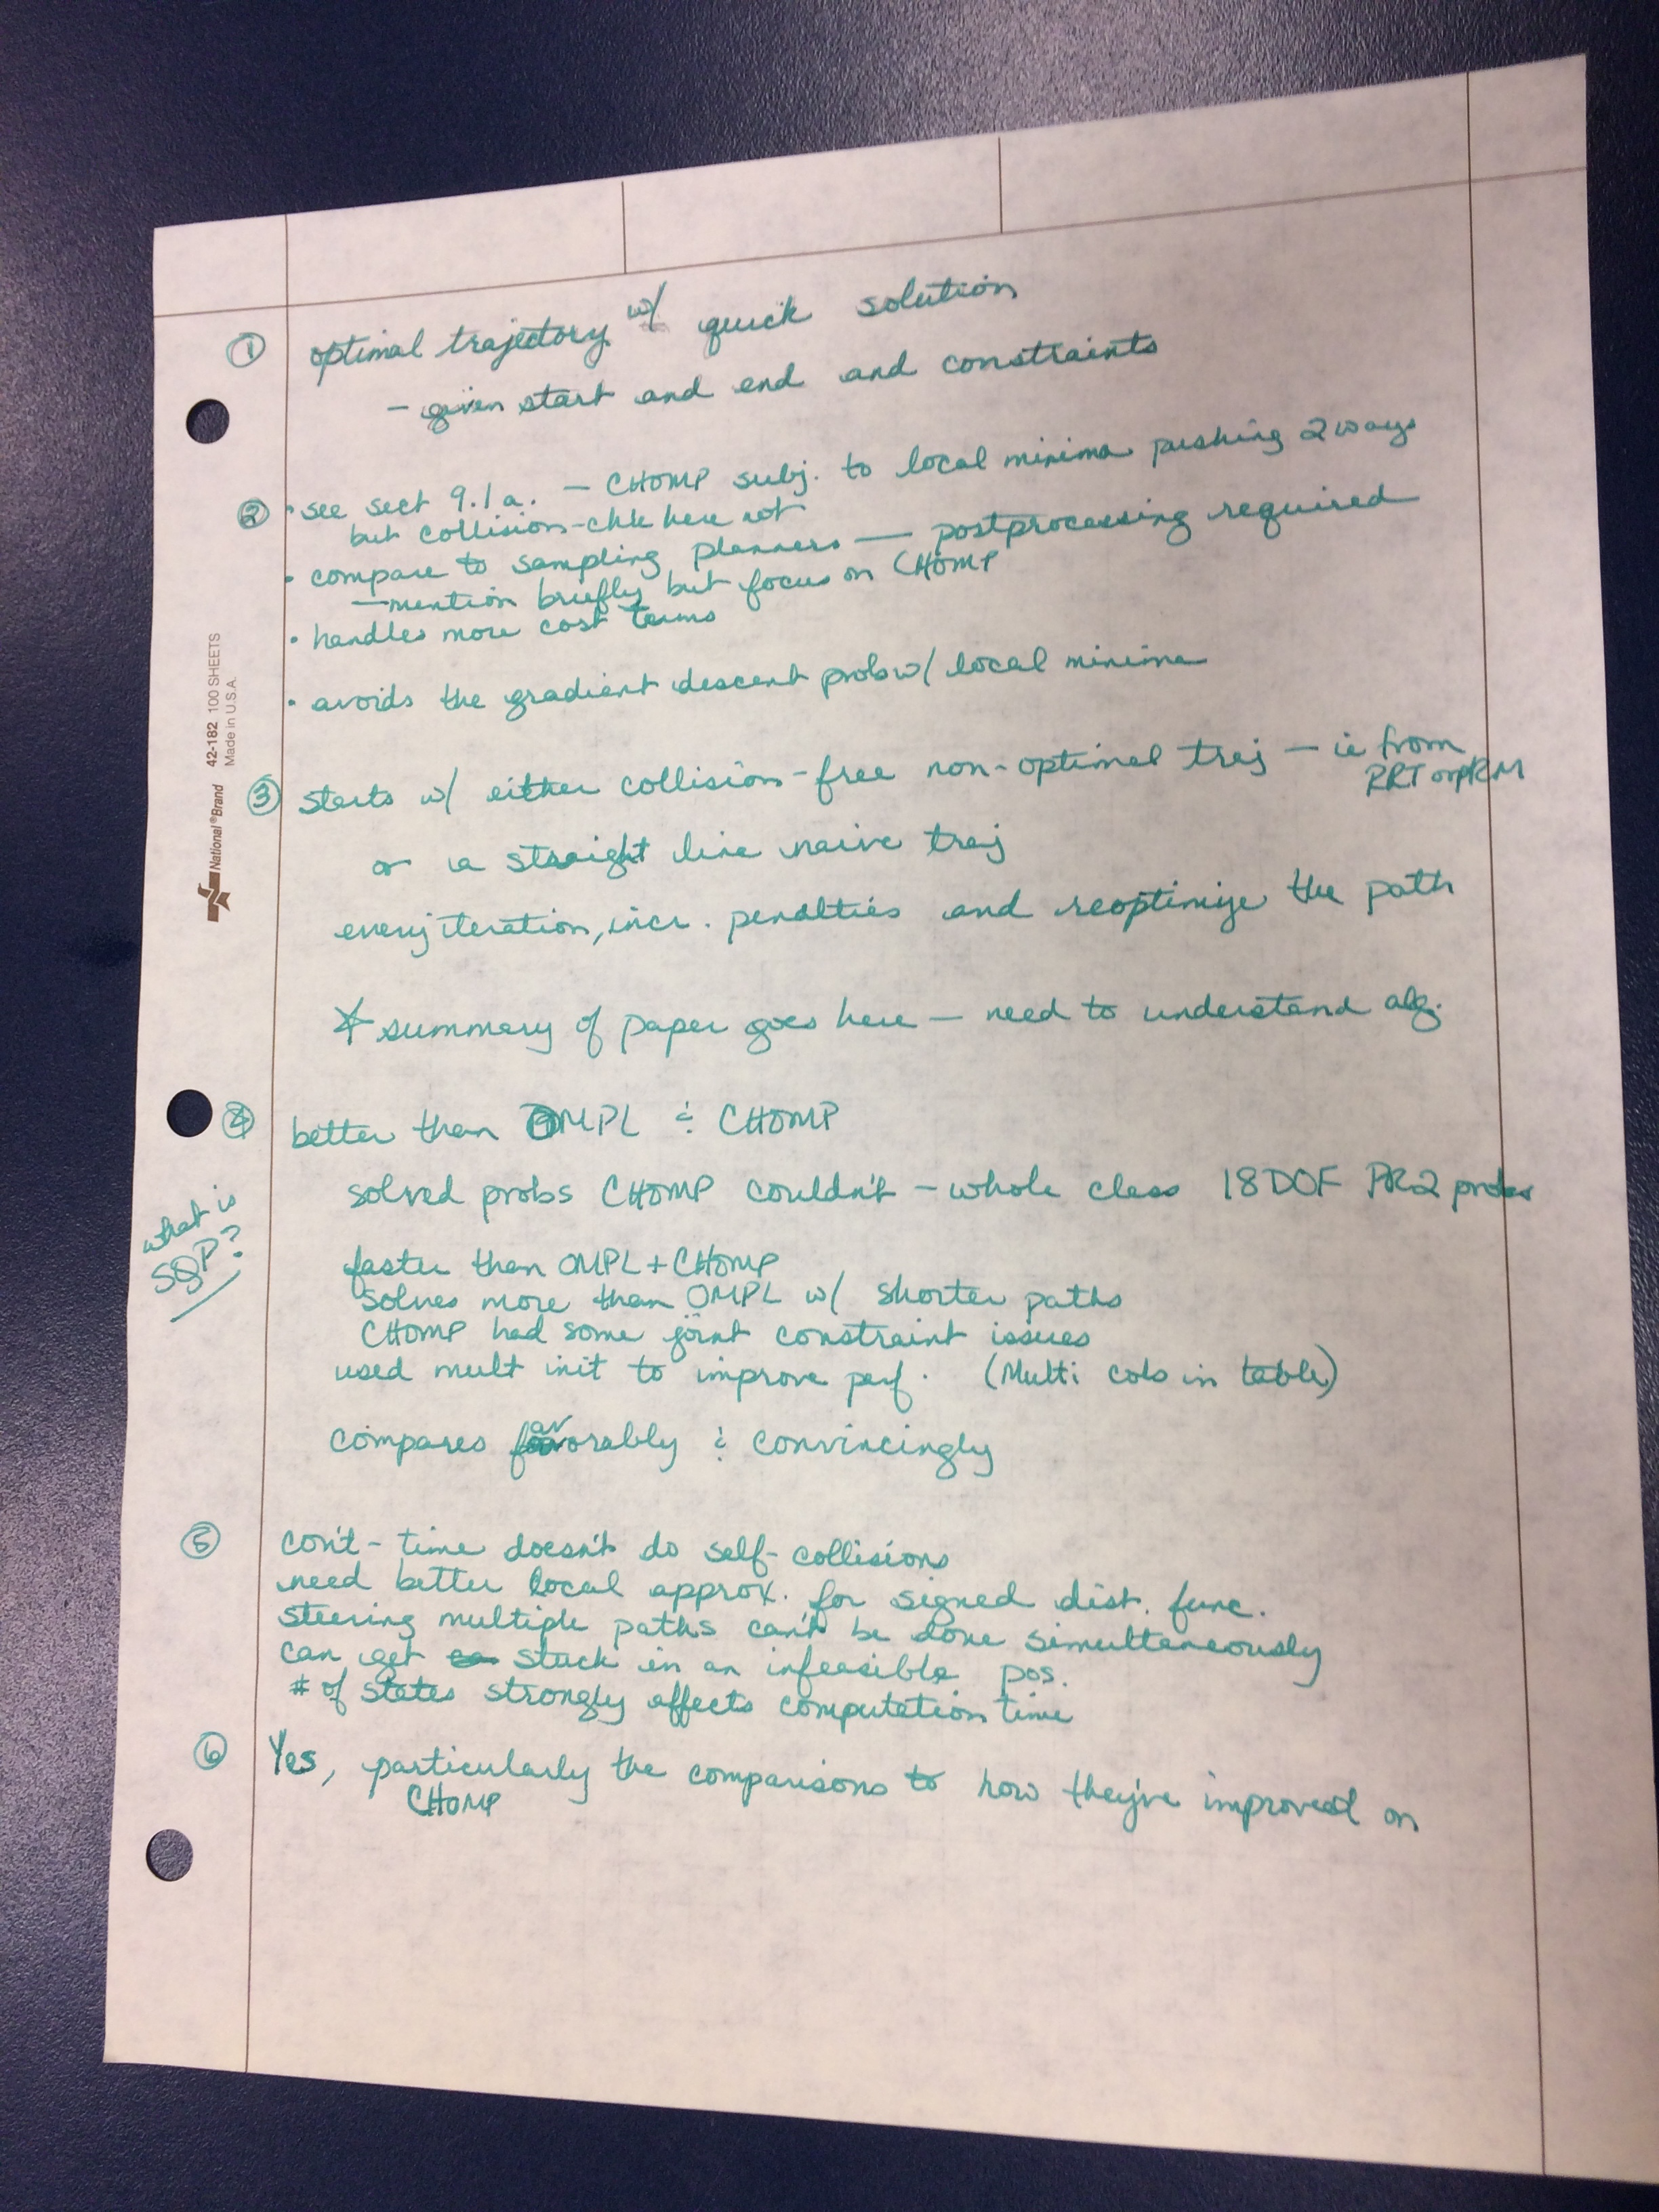 ① optimal trajectory w/ quick solution
- given start and end and constraints
② • see sect 9.1a. - CHOMP subj. to local minima pushing 2 ways
but collision-chk here not
• compare to sampling planners — postprocessing required
- mention briefly but focus on CHOMP
• handles more cost terms
• avoids the gradient descent prob w/ local minima
③ starts w/ either collision-free non-optimal traj - ie from
RRT or pRM
or a straight line naive traj
every iteration, incr. penalties and reoptimize the path
* summary of paper goes here - need to understand alg.
④ better than OMPL & CHOMP
solved probs CHOMP couldn't - whole class 18DOF PR2 probs
what is
SQP?
faster than OMPL + CHOMP
solves more than OMPL w/ shorter paths
CHOMP had some joint constraint issues
used mult init to improve perf. (Multi cols in table)
compares favorably & convincingly
⑤ con't-time doesn't do self-collisions
need better local approx. for signed dist. func.
steering multiple paths can't be done simultaneously
can get stuck in an infeasible pos.
# of states strongly affects computation time
⑥ Yes, particularly the comparisons to how they've improved on
CHOMP
National ® Brand 42-182 100 SHEETS
Made in U.S.A.